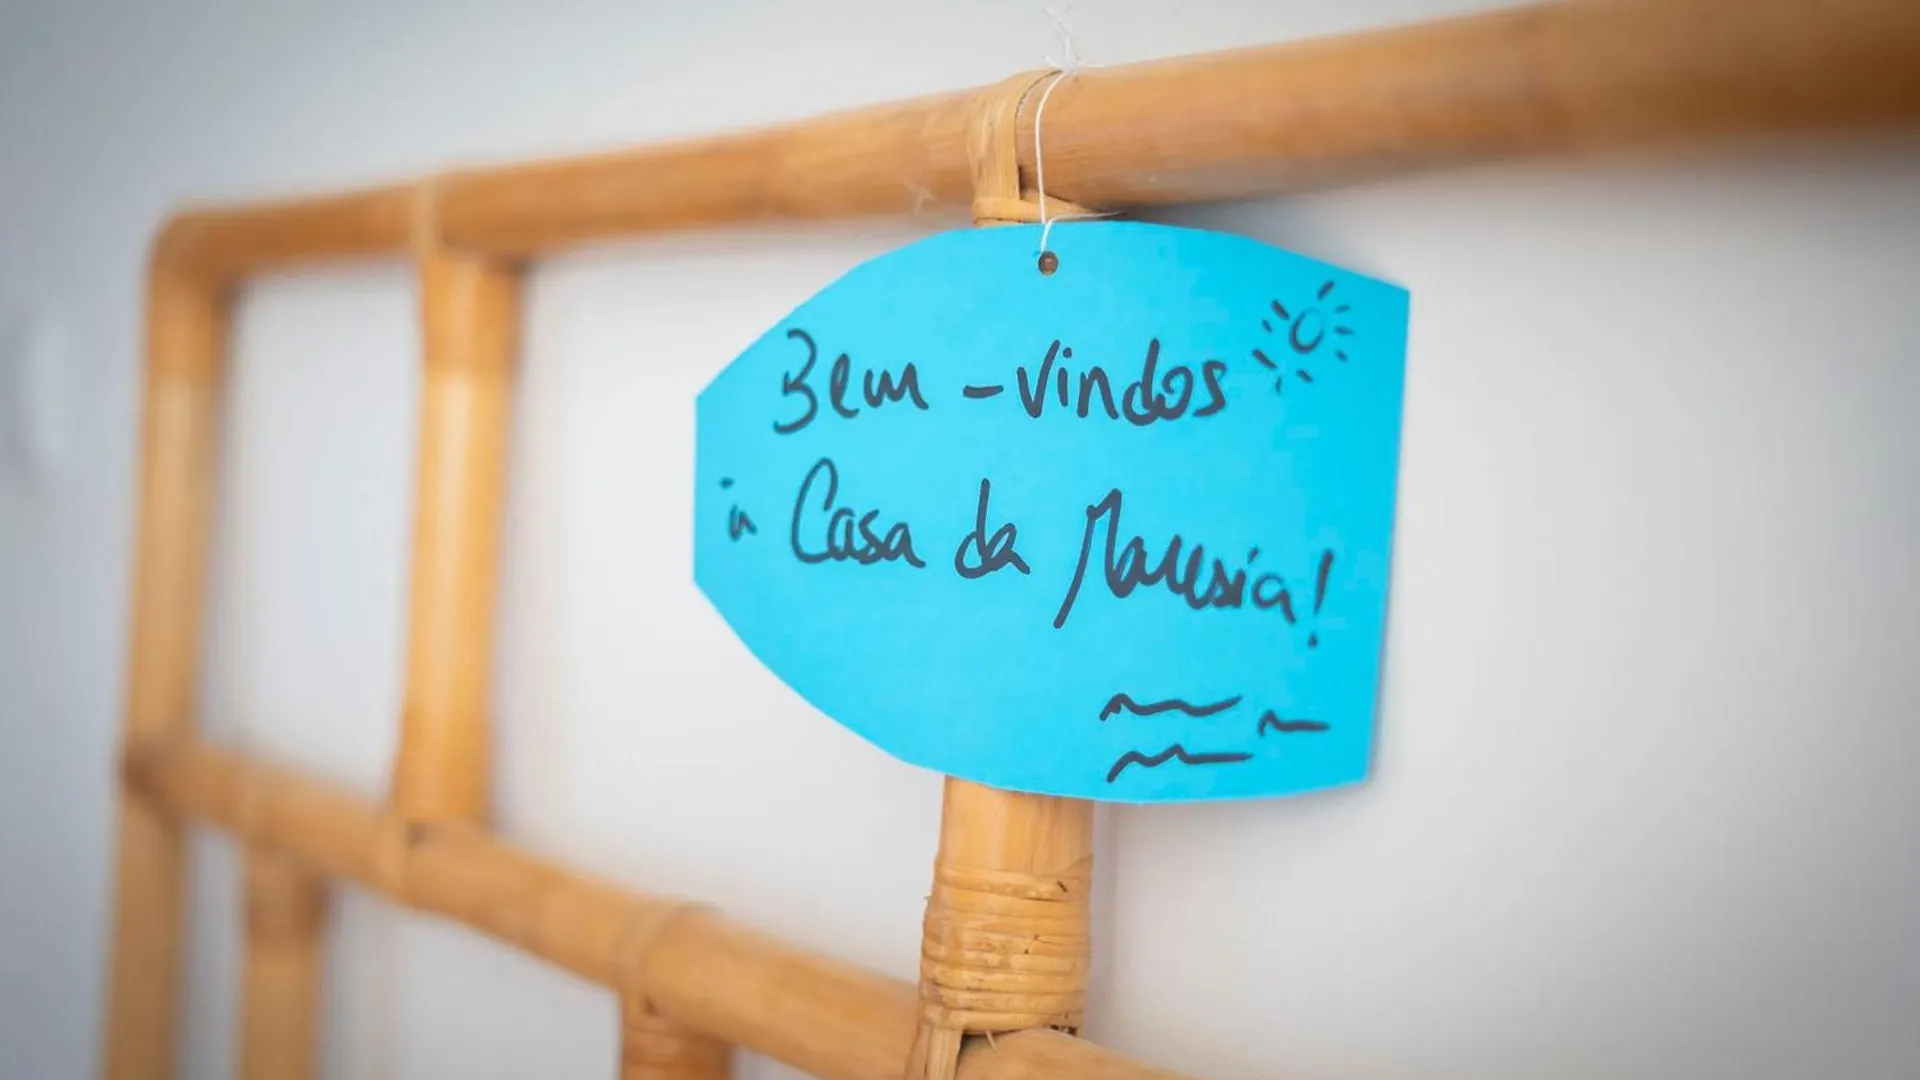 Bem-vindos
à Casa da Maresia!